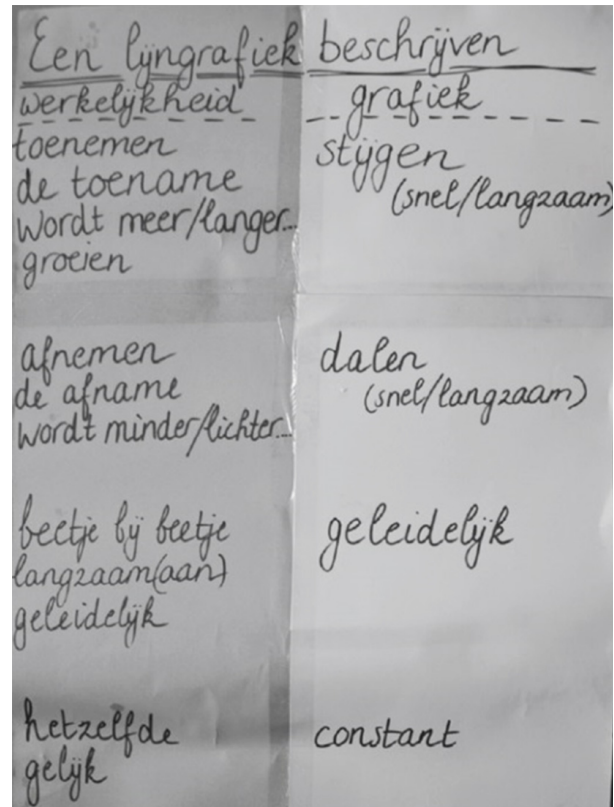 Een lijngrafiek beschrijven
werkelijkheid
grafiek
toenemen
de toename
wordt meer/langer...
groeien
stijgen
(snel/langzaam)
afnemen
de afname
wordt minder/lichter...
dalen
(snel/langzaam)
beetje bij beetje
langzaam(aan)
geleidelijk
geleidelijk
hetzelfde
gelijk
constant